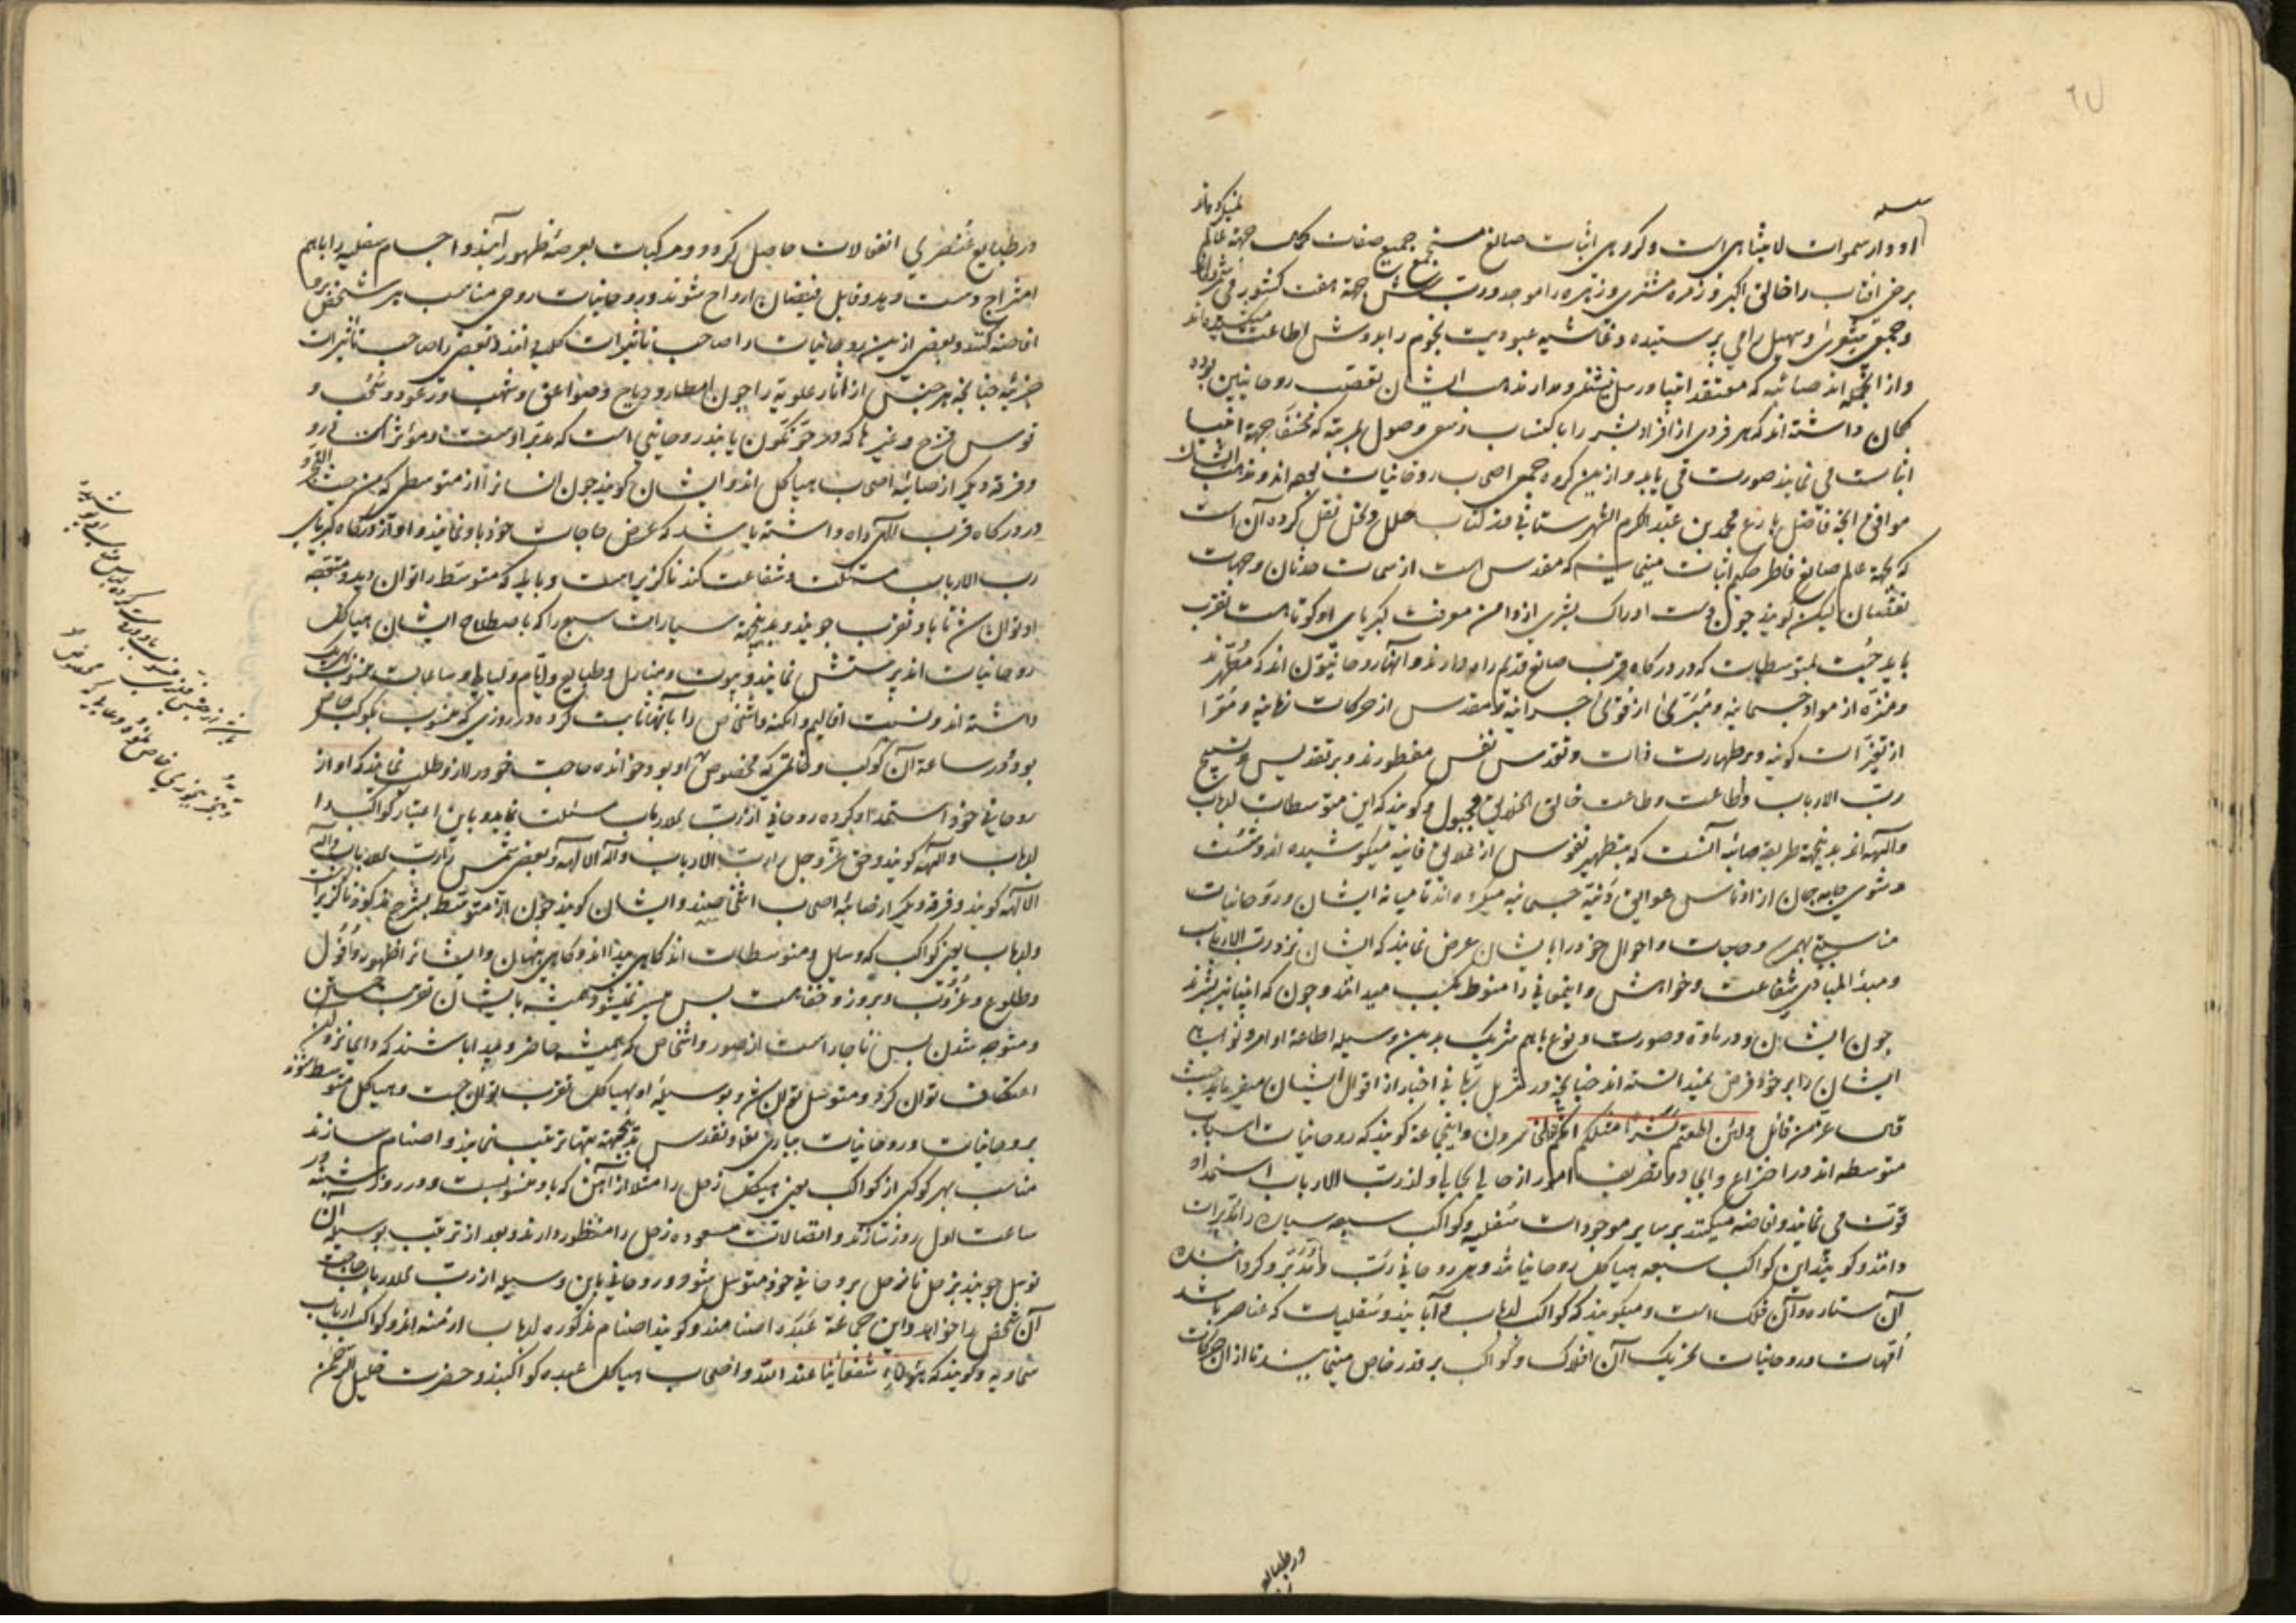 ادوار سموات لا یتناهی است و کروهی اثبات صانع مستجمع جمیع صفات کمال جهة عالم
برخی افتاب را خالق اکبر و زمره مشتری و زهره را موجد و رب جهة هفت کشور
و جمعی شعری و سهیل را می پرستیده و غاشیه عبودیت نجوم را بدوش اطاعت میکشیده اند
و از انجمله اند صائبه که معتقد انبیا و رسل نیستند و مدار مذهب ایشان تعصب روحانیین بوده
کمان داشته اند که هر فردی از افراد بشر را باکتساب و سعی وصول بمرتبه که جهة انبیا
اثبات می نمایند صورت می یابد و ازین کروه جمعی اصحاب روحانیات اند و مذهب ایشان
موافق انچه فاضل بارع محمد بن عبد الکرم الشهرستانی در کتاب ملل و نحل نقل کرده آن است
که بجهة عالم صانع فاطر حکیم اثبات مینمایند که مقدس است از سمات حدثان و جهات
نقصان لیکن کویند چون دست ادراک بشری از دامن معرفت کبریای او کوتاهست تقرب
باید جست بمتوسطات که در درکاه قرب صانع قدیم راه دارند و آنها روحانیون اند که مطهرند
و منزه از مواد جسمانیه و مبرئ از قوای جسدانیه و مقدس از حرکات زمانیه و مبرا
از تغیرات کونیه و بر طهارت ذات و تقدس نفس مفطورند و بر تقدیس و تسبیح
رب الارباب و اطاعت و طاعت خالق الخلایق مجبول و کویند که این متوسطات ارباب
و آلهه اند بدینجهة طریقه صائبه آنست که بتطهیر نفوس از اخلاق فانیه میکوشیده اند و شست
و شوی جامه جان از ادناس عوایق دنیه جسمانیه میکرده اند تا میانه ایشان و روحانیات
مناسبتی بهم رسد و حاجات و احوال خود را بایشان عرض نمایند که ایشان نزد رب الارباب
و مبدأ المبادی شفاعت و خواهش و اینمعانی را منوط بکسب میدانند و چون که انبیا نیز بشرند
چون ایشان و در ماده و صورت و نوع باهم شریک بدین وسیله اطاعة اوامر و نواهی
ایشان را بر خود فرض نمیدانسته اند چنانچه در تنزیل ربانی اخبار از اقوال ایشان میفرماید حیث
قال عز من قائل ولئن اطعتم بشرا مثلکم انکم اذا لخاسرون و اینجماعة کویند که روحانیات اسباب
متوسطه اند در اختراع و ایجاد و تصریف امور از حالی بحالی و از رب الارباب استمداد
قوت می نمایند و افاضه میکنند بر سایر موجودات سفلیه و کواکب سبعه سیاره را مدبرات
دانند و کویند این کواکب سبعه هیاکل روحانیاتند و هر روحانی رب و مدبر و کرداننده
آن ستاره و آن فلک است و میکویند که کواکب ارباب و آبایند و سفلیات که عناصر باشد
امهات و روحانیات تحریک آن افلاک و کواکب بر قدر خاص مینمایند تا از ان حرکات
در طبایع
در طبایع عنصری انفعالات حاصل کردد و مرکبات بعرصه ظهور آیند و اجسام سفلیه را باهم
امتزاج دست دهد و قابل فیضان ارواح شوند و روحانیات روحی مناسب هر شخص برو
افاضه کنند و بعضی ازین روحانیات را صاحب تاثیرات کلی دانند و بعضی را صاحب تاثیرات
جزئیه چنانچه هر جنس از اثار علویه را چون امطار و ریاح و صواعق و شهب و رعود و سحب و
قوس قزح و غیرها که در جو تکون یابند روحانیی است که مدبر اوست و مؤثر در او
و فرقه دیکر از صائبه اصحاب هیاکل اند و ایشان کویند چون انسانرا از متوسطی که
در درکاه قرب الهی راه داشته باشد که عرض حاجات خود باو نمایند و او از درکاه کبریای
رب الارباب مسئلت و شفاعت کند ناکزیر است و باید که متوسط را توان دید و متوجه
او توان شد تا باو تقرب جویند بدینجهة سیارات سبع را که باصطلاح ایشان هیاکل
روحانیات اند پرستش نمایند و بیوت و منازل و طبایع و ایام و لیالی و ساعات منسوب بهریک
داشته اند و نسبت اقالیم و امکنه و اشخاص را بآنها ثابت کرده در روزی که منسوب بکوکب خاص
بود و در ساعة آن کوکب و خاتمی که مخصوص او بود خوانده حاجت خود را ازو طلب نمایند که او از
روحانی خود استمداد کرده روحانی از رب الارباب مسئلت نماید و باین اعتبار کواکب را
ارباب و آلهه کویند و حق عز و جل را رب الارباب و اله الآلهه و بعضی شمس را رب الارباب و اله
الآلهه کویند و فرقه دیکر از صائبه اصحاب اشخاصند و ایشان کویند چون از متوسط بشرح مذکور ناکزیر است
و ارباب یعنی کواکب که وسایل و متوسطات اند کاهی پیدا اند و کاهی پنهان و ایشانرا ظهور و افول
و طلوع و غروب و بروز و خفا هست پس میسر نمیشود همیشه بایشان تقرب جستن
و متوجه شدن پس ناچار است از صور و اشخاص که همیشه حاضر و پیدا باشند که دایم نزد ان
اعتکاف توان کرد و متوسل توان شد و بوسیله او بهیاکل تقرب توان جست و هیاکل متوسط شوند
بروحانیات و روحانیات بباری تعالی و تقدس بدینجهة بتها ترتیب نمایند و اصنام سازند
مناسب بهر کوکبی از کواکب یعنی هیکل زحل را مثلا از آهن که باو منسوبست و در روز شنبه در
ساعت اول روز سازند و اتصالات مسعوده زحل را منظور دارند و بعد از ترتیب بوسیله آن
توسل جویند بزحل تا زحل بروحانی خود متوسل شود و روحانی باین وسیله از رب الارباب حاجت
آن شخص را خواهد و این جماعة عبده اصنامند و کویند اصنام مذکوره ارباب ارضیه اند و کواکب ارباب
سماویه و کویند که هؤلاء شفعائنا عند الله و اصحاب هیاکل عبده کواکبند و حضرت خلیل الرحمن